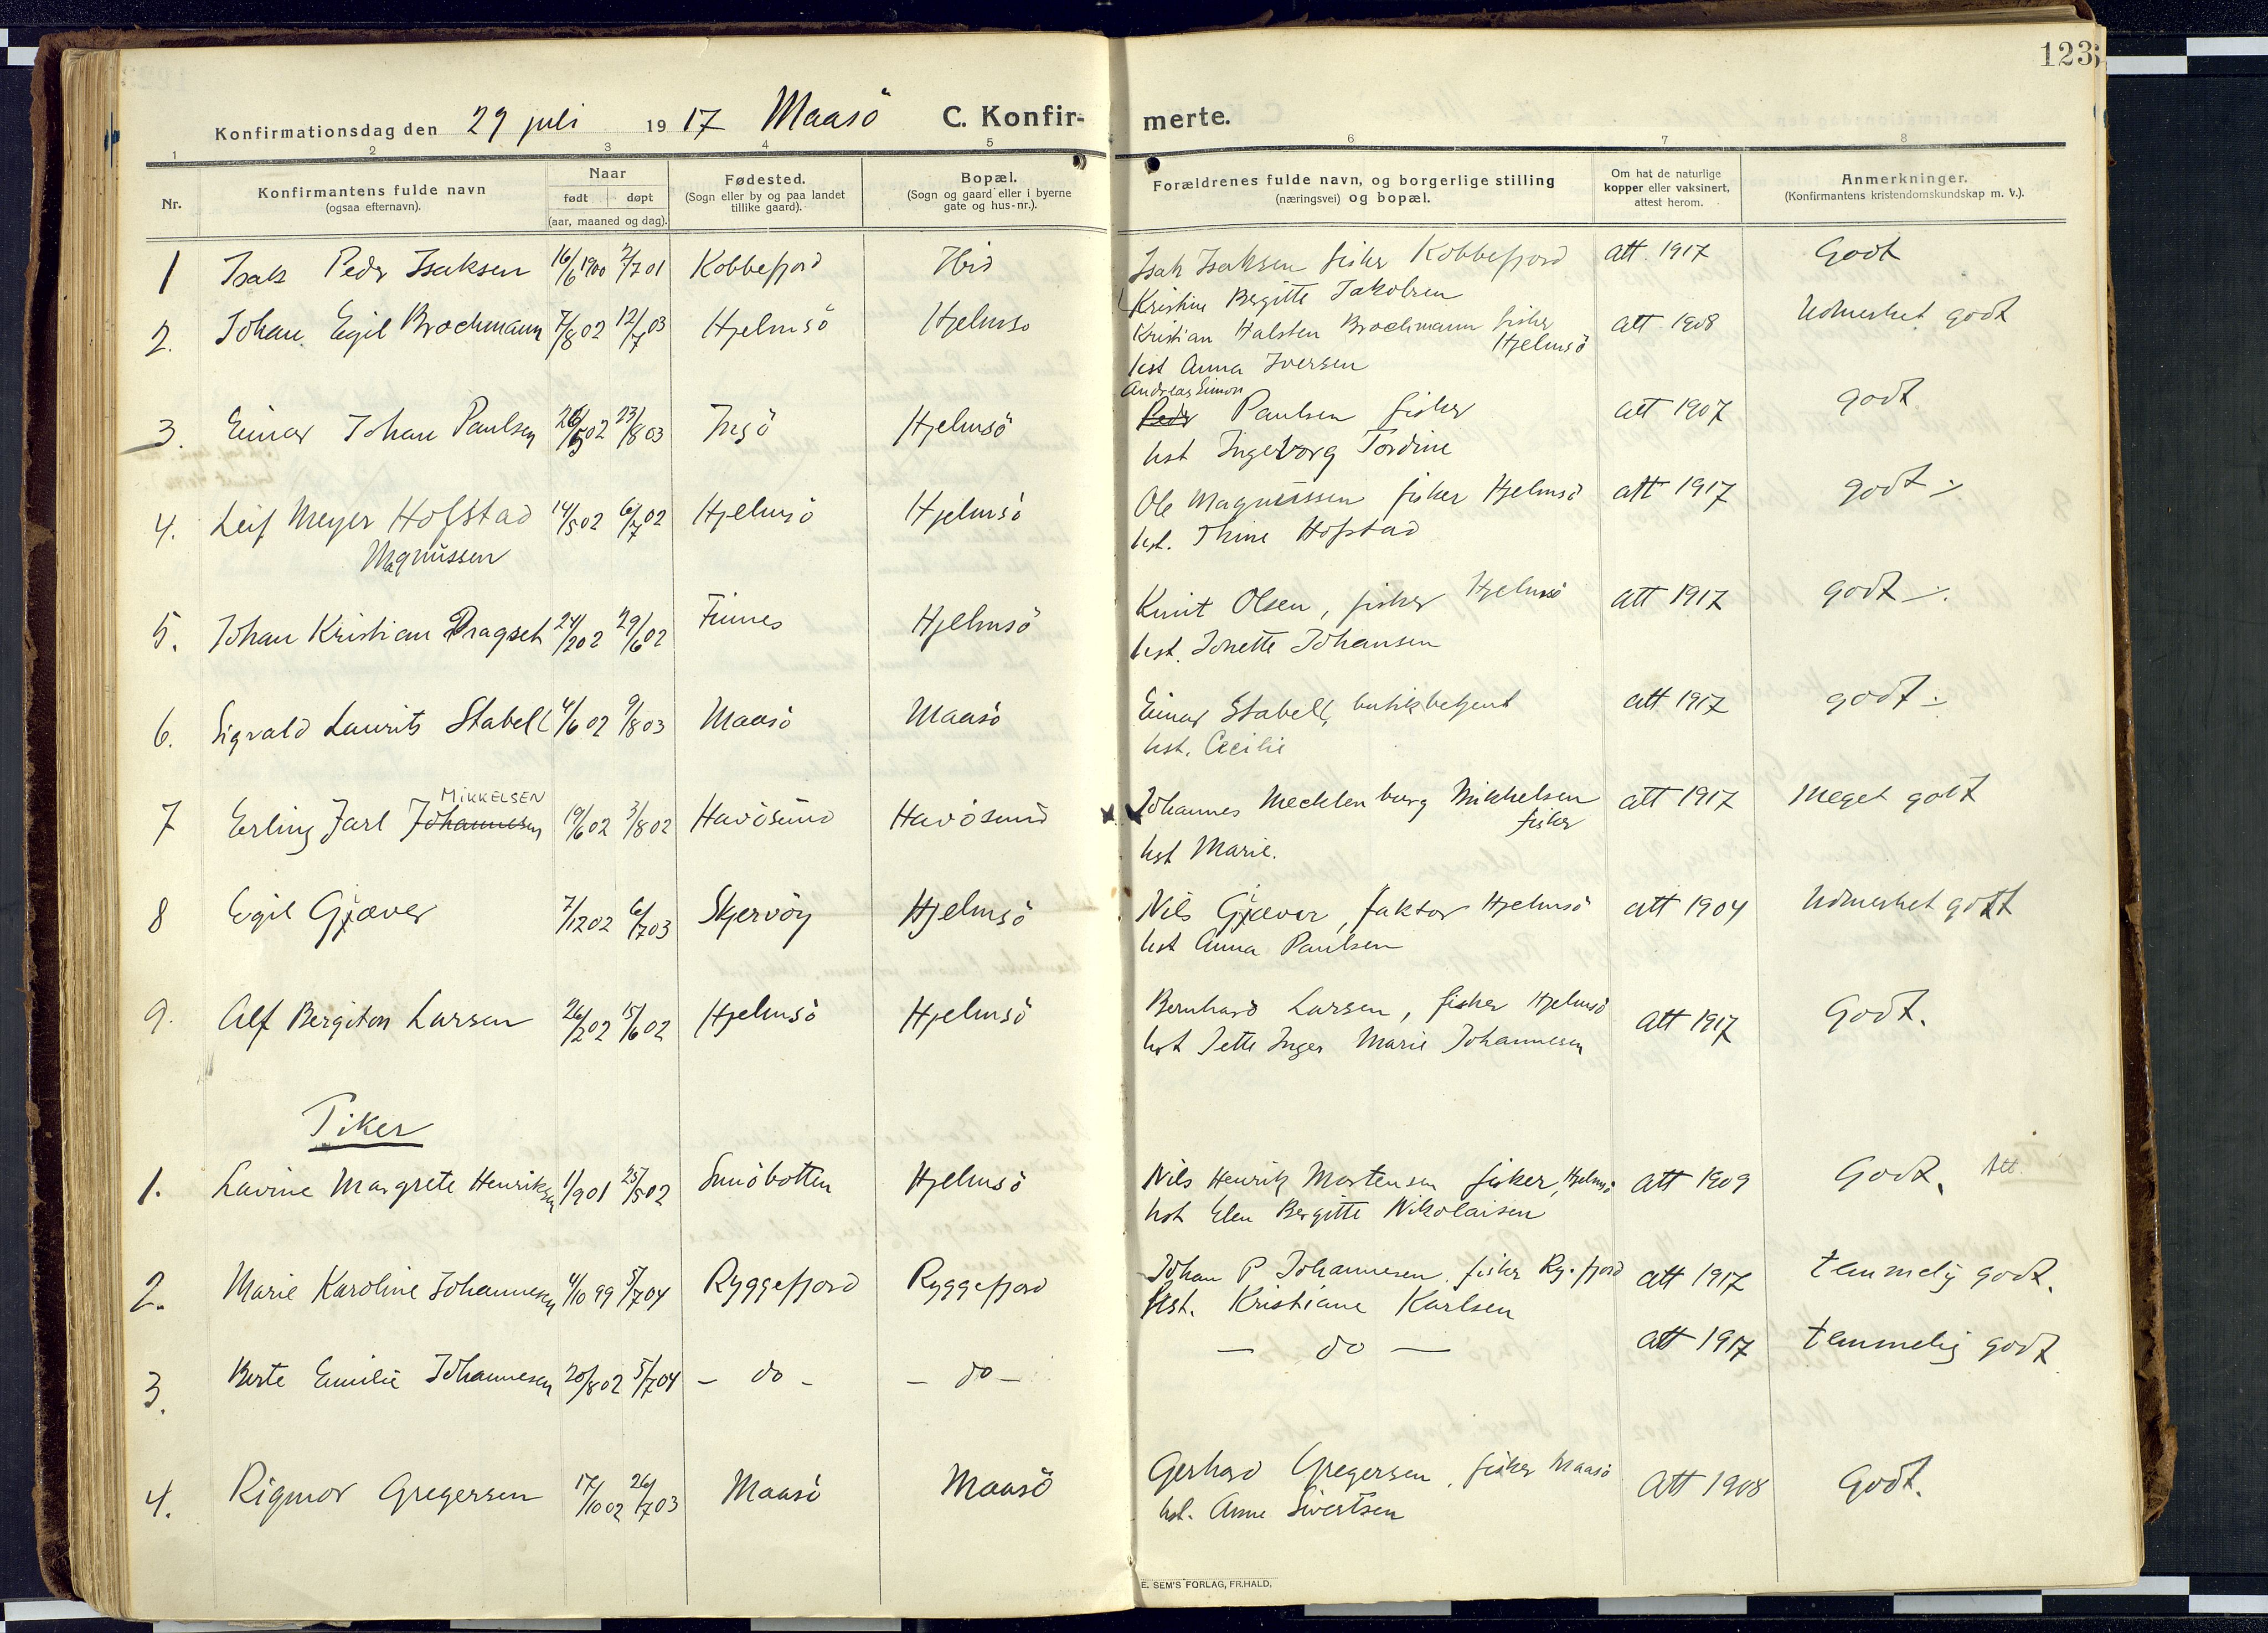 123
Konfirmationsdag den 29 juli 1917 Maasö C. Konfirmerte.
1 2 3 4 5 6 7 8
Nr.
Konfirmantens fulde navn
(ogsaa efternavn).
Naar
født døpt
(aar, maaned og dag).
Fødested.
(Sogn eller by og paa landet
tillike gaard).
Bopæl.
(Sogn og gaard eller i byerne
gate og hus-nr.).
Forældrenes fulde navn, og borgerlige stilling
(næringsvei) og bopæl.
Om hat de naturlige
kopper eller vaksinert,
attest herom.
Anmerkninger.
(Konfirmantens kristendomskundskap m. v.).
1 Isak Peder Isaksen 16/6 1900 2/7 01 Kobbefjord Ibid Isak Isaksen fisker Kobbefjord att. 1917 Godt
Kristine Bergitte Jakobsen
2. Johan Egil Brochmann 7/8 02 12/7 03 Hjelmsö Hjelmsö Kristian Halsten Brochmann fisker att 1908 Udmerket godt
Hjelmsö
hst Anna Iversen
Andreas Simon
3. Einar Johan Paulsen 26/5 02 23/8 03 Ingö Hjelmsö Peder Paulsen fisker att 1907 godt
hst Ingeborg Tordine
4. Leif Meyer Hofstad 14/5 02 6/7 02 Hjelmsö Hjelmsö Ole Magnussen fisker Hjelmsö att 1917 godt
Magnussen hst. Thine Hofstad
5. Johan Kristian Dragseth 24/2 02 29/6 02 Finnes Hjelmsö Knut Olsen, fisker Hjelmsö att 1917 godt
hst. Jonette Johansen
6. Sigvald Laurits Stabell 4/6 02 9/8 03 Maasö Maasö Einar Stabell, butikbetjent att 1917 godt
hst. Cecilie
MIKKELSEN
7 Erling Jarl Johannesen 19/6 02 3/8 02 Havösund Havösund Johannes Mecklenburg Mikkelsen att 1917 Meget godt
fisker
hst Marie.
8 Egil Gjæver 7/12 02 6/7 03 Skjervöy Hjelmsö Nils Gjæver, faktor Hjelmsö att 1904 Udmerket godt
hst Anna Paulsen
9. Alf Bergiton Larsen 26/2 02 15/6 02 Hjelmsö Hjelmsö Bernhard Larsen, fisker Hjelmsö att 1917 Godt.
hst Jette Inger Marie Johannesen
Piker
1. Lavine Margrete Henriksen 1/9 01 25/5 02 Snöbotten Hjelmsö Nils Henrik Mortensen fisker, Hjelmsö att 1909 Godt. Att.
hst Elen Bergitte Nikolaisen
2. Marie Karoline Johannesen 4/10 99 5/7 04 Ryggefjord Ryggefjord Johan P. Johannesen. fisker Ry.fjord att 1917 temmelig godt.
hst. Kristiane Karlsen
3. Berte Emilie Johannesen 20/8 02 5/7 04 - do - - do - - do - att 1917 temmelig godt
4. Rigmor Gregersen 17/10 02 26/7 03 Maasö Maasö Gerhard Gregersen, fisker Maasö att 1908 Godt.
hst. Anne Sivertsen
E. SEM'S FORLAG, FR.HALD.